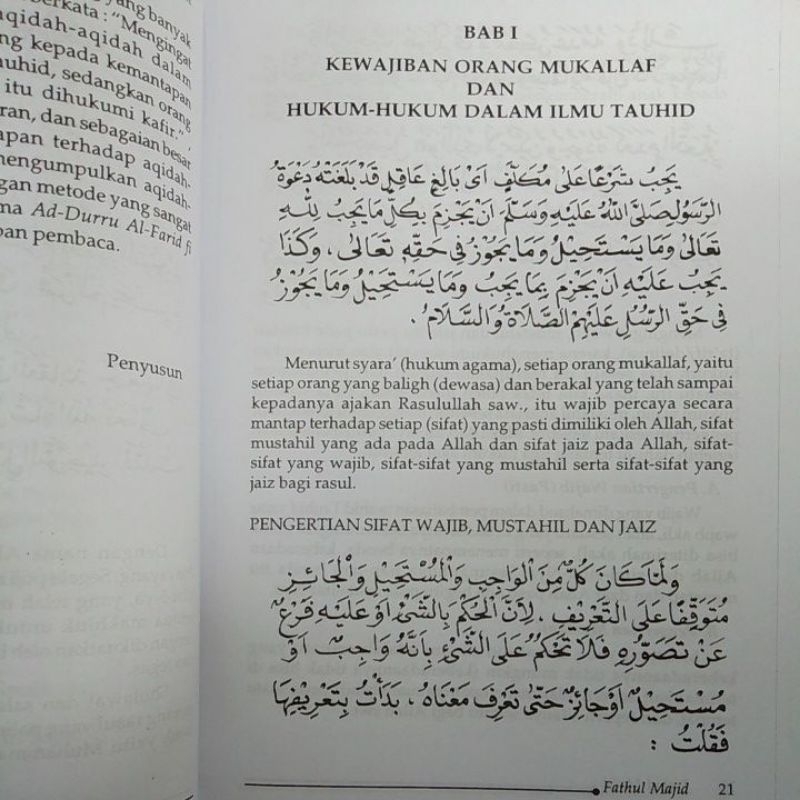 yang banyak
berkata : "Mengingat
aqidah-aqidah dalam
ng kepada kemantapan
auhid, sedangkan orang
itu dihukumi kafir."
ran, dan sebagaian besar
apan terhadap aqidah-
mengumpulkan aqidah-
gan metode yang sangat
ma Ad-Durru Al-Farid fi
pan pembaca.
Penyusun
BAB I
KEWAJIBAN ORANG MUKALLAF
DAN
HUKUM-HUKUM DALAM ILMU TAUHID
يَجِبُ شَرْعًا عَلَى مُكَلَّفٍ اَىْ بَالِغٍ عَاقِلٍ قَدْ بَلَغَتْهُ دَعْوَةُ
الرَّسُوْلِ صَلَّى اللهُ عَلَيْهِ وَسَلَّمَ اَنْ يَجْزِمَ بِكُلِّ مَا يَجِبُ لِلّٰهِ
تَعَالَى وَمَا يَسْتَحِيْلُ وَمَا يَجُوْزُ فِى حَقِّهِ تَعَالَى ، وَكَذَا
يَجِبُ عَلَيْهِ اَنْ يَجْزِمَ بِمَا يَجِبُ وَمَا يَسْتَحِيْلُ وَمَا يَجُوْزُ
فِى حَقِّ الرُّسُلِ عَلَيْهِمُ الصَّلَاةُ وَالسَّلَامُ .
Menurut syara' (hukum agama), setiap orang mukallaf, yaitu
setiap orang yang baligh (dewasa) dan berakal yang telah sampai
kepadanya ajakan Rasulullah saw., itu wajib percaya secara
mantap terhadap setiap (sifat) yang pasti dimiliki oleh Allah, sifat
mustahil yang ada pada Allah dan sifat jaiz pada Allah, sifat-
sifat yang wajib, sifat-sifat yang mustahil serta sifat-sifat yang
jaiz bagi rasul.
PENGERTIAN SIFAT WAJIB, MUSTAHIL DAN JAIZ
وَلَمَّا كَانَ كُلٌّ مِنَ الْوَاجِبِ وَالْمُسْتَحِيْلِ وَالْجَائِزِ
مُتَوَقِّفًا عَلَى التَّعْرِيْفِ ، لِاَنَّ الْحُكْمَ بِالشَّىْءِ اَوْ عَلَيْهِ فَرْعٌ
عَنْ تَصَوُّرِهِ فَلَا تَحْكُمُ عَلَى الشَّىْءِ بِاَنَّهُ وَاجِبٌ اَوْ
مُسْتَحِيْلٌ اَوْ جَائِزٌ حَتَّى تَعْرِفَ مَعْنَاهُ ، بَدَأْتُ بِتَعْرِيْفِهَا
فَقُلْتُ :
Fathul Majid 21